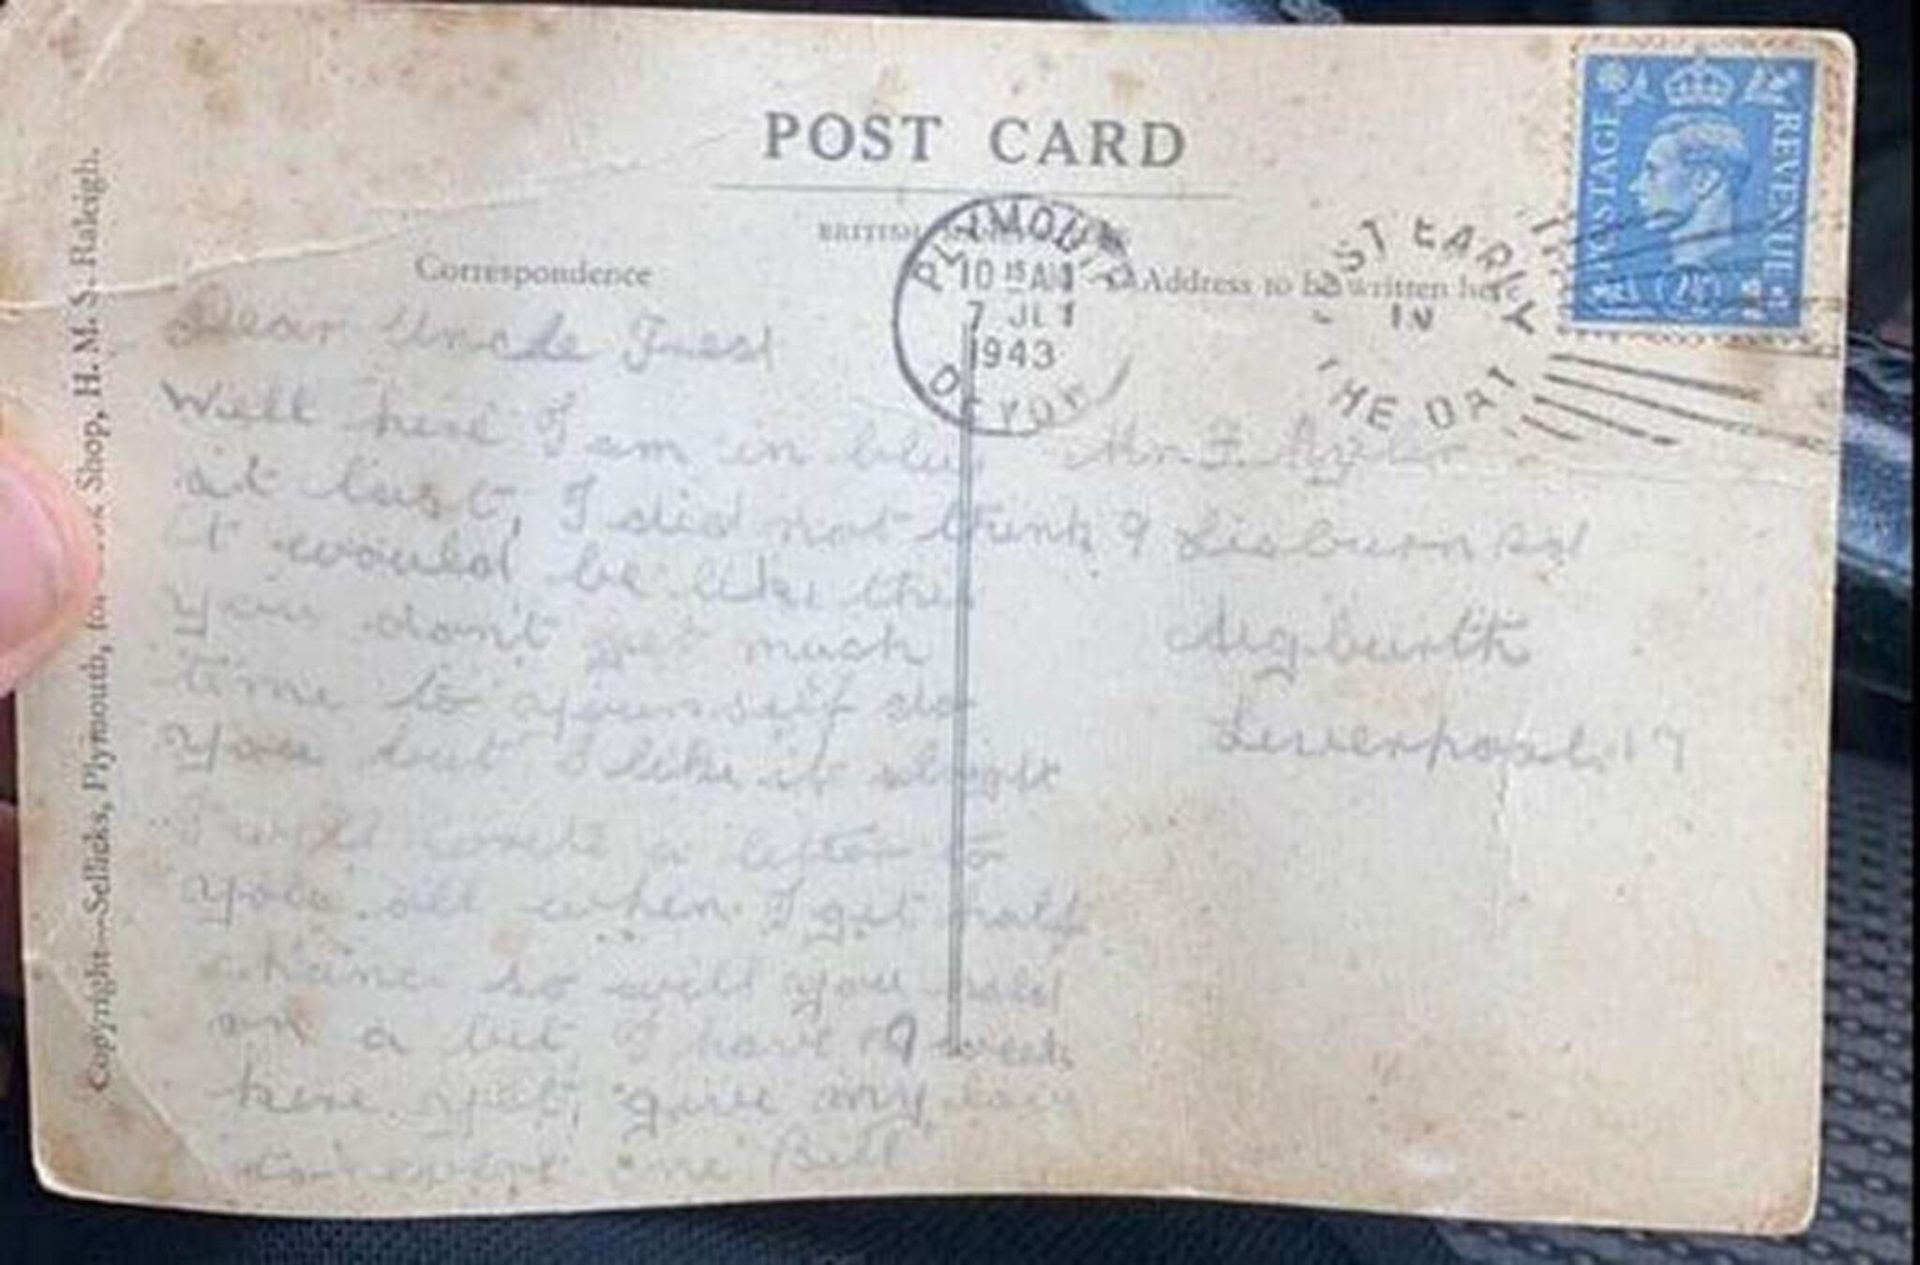 POST CARD
BRITISH
Correspondence
Address to be written here
PLYMOUTH
10 15 AM
7 JLY
1943
DEVON
POST EARLY
IN
THE DAY
POSTAGE REVENUE
2½
Copyright—Sellicks, Plymouth, for Shop, H. M. S. Raleigh.
Dear Uncle
Well here I am in blue
at last, I did not think
it would be like this
you don't get much
time to yourself do
you but I like it alright
I will write a letter to
you all when I get half
chance so will you hold
on a bit, I have week
here yet, give my love
to one Bill
Mr F.
9 Lisburn Rd
Aigburth
Liverpool. 17